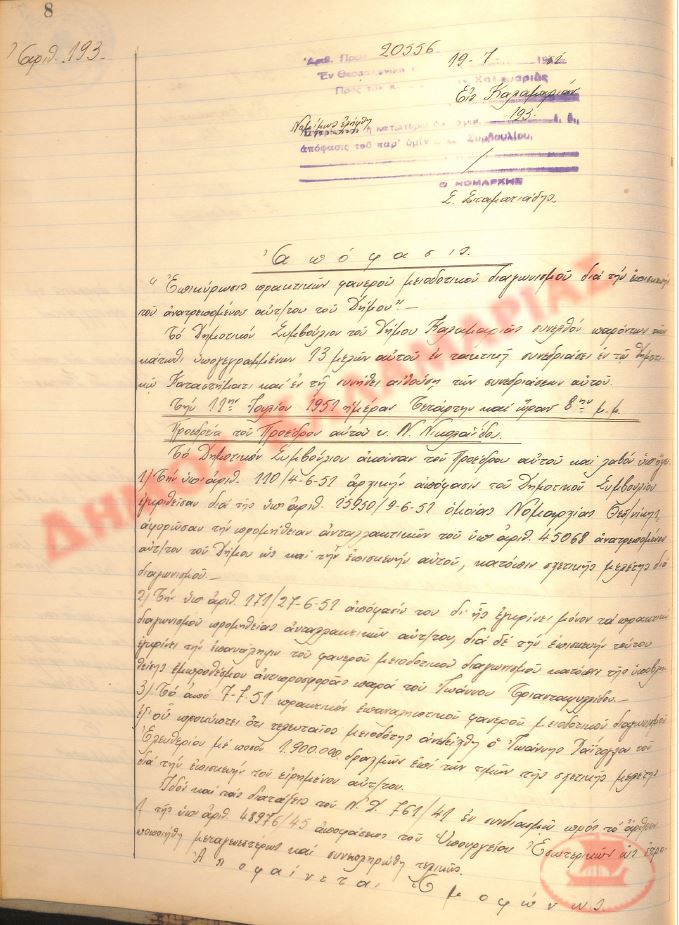 8
Ἀριθ. 193.
Ἀριθ. Πρωτ. 20556
Ἐν Θεσσαλονίκῃ 19-7-
Πρὸς τὸν Καλαμαριᾶς
Εἰς Καλαμαριάν
193
Νομίμως ἐλήφθη
ἡ κατωτέρω
ἀπόφασις τοῦ παρ' ὑμῖν Συμβουλίου.
Ο ΝΟΜΑΡΧΗΣ
Σ. Σταματιάδης
Ἀπόφασις.
"Ἐπικύρωσις πρακτικῶν φανεροῦ μειοδοτικοῦ διαγωνισμοῦ διὰ τὴν ἐπισκευὴν
τοῦ ἀνατρεπομένου αὐτ/του τοῦ Δήμου".-
Τὸ Δημοτικὸν Συμβούλιον τοῦ Δήμου Καλαμαριᾶς συνελθὸν παρόντων τῶν
κάτωθι ὑπογεγραμμένων 13 μελῶν αὐτοῦ ἐν τακτικῇ συνεδριάσει ἐν τῷ Δημοτι-
κῷ Καταστήματι καὶ ἐν τῇ συνήθει αἰθούσῃ τῶν συνεδριάσεων αὐτοῦ.
Τὴν 11ην Ἰουλίου 1951 ἡμέραν Τετάρτην καὶ ὥραν 8ην μ.μ.
Προεδρείᾳ τοῦ Προέδρου αὐτοῦ κ. Ν. Νικλαΐδου.
Τὸ Δημοτικὸν Συμβούλιον ἀκοῦσαν τοῦ Προέδρου αὐτοῦ καὶ λαβὸν ὑπ' ὄψει
1) Τὴν ὑπ' ἀριθ. 110/4-6-51 ἀρχικὴν ἀπόφασιν τοῦ Δημοτικοῦ Συμβουλίου
ἐγκριθεῖσαν διὰ τῆς ὑπ' ἀριθ. 15950/9-6-51 ὁμοίας Νομαρχίας Θεσ/νίκης
ἀφορῶσαν τὴν προμήθειαν ἀνταλλακτικῶν τοῦ ὑπ' ἀριθ. 45068 ἀνατρεπομένου
αὐτ/του τοῦ Δήμου ὡς καὶ τὴν ἐπισκευὴν αὐτοῦ, κατόπιν σχετικῆς μελέτης διὰ
διαγωνισμοῦ.-
2) Τὴν ὑπ' ἀριθ. 171/27-6-51 ἀπόφασίν του δι' ἧς ἐγκρίνει μόνον τὰ πρακτικὰ
διαγωνισμοῦ προμηθείας ἀνταλλακτικῶν αὐτ/του, διὰ δὲ τὴν ἐπισκευὴν τούτου
ἐγκρίνει τὴν ἐπανάληψιν τοῦ φανεροῦ μειοδοτικοῦ διαγωνισμοῦ κατόπιν τῆς ὑποβλη-
θείσης ἐμπροθέσμου ἀντιπροσφορᾶς παρὰ τοῦ Ἰωάννου Τριανταφυλλίδου.-
3) Τὸ ἀπὸ 7-7-51 πρακτικὸν ἐπαναληπτικοῦ φανεροῦ μειοδοτικοῦ διαγωνισμοῦ
ἐξ οὗ προκύπτει ὅτι τελευταῖος μειοδότης ἀνεδείχθη ὁ Ἰωάννης τοῦ
Ἐλευθερίου μὲ ποσὸν 1.900.000 δραχμῶν ἐπὶ τῶν τιμῶν τῆς σχετικῆς μελέτης
διὰ τὴν ἐπισκευὴν τοῦ εἰρημένου αὐτ/του.
Ἰδὸν καὶ τὰς διατάξεις τοῦ Ν.Δ. 761/41 ἐν συνδιασμῷ πρὸς τὸ ἄρθρον
1 τῆς ὑπ' ἀριθ. 48976/45 ἀποφάσεως τοῦ Ὑπουργείου Ἐσωτερικῶν ὡς ἐτρο-
ποποιήθη μεταγενεστέρως καὶ συνεπληρώθη τελικῶς.
Ἀποφαίνεται Ὁμοφώνως
ΔΗΜΟΣ ΚΑΛΑΜΑΡΙΑΣ